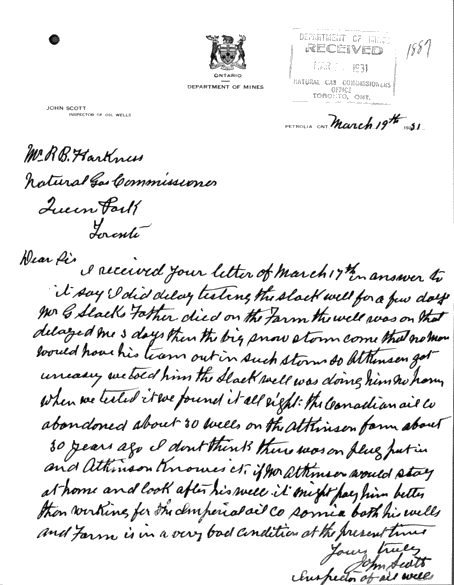 DEPARTMENT OF MINES
RECEIVED
MAR 1931
NATURAL GAS COMMISSIONERS
OFFICE
TORONTO, ONT.
1887
ONTARIO
DEPARTMENT OF MINES
JOHN SCOTT
INSPECTOR OF OIL WELLS
PETROLIA ONT March 19th 1931
Mr R B. Harkness
Natural Gas Commissioner
Queen Park
Toronto
Dear Sir
I received your letter of March 17th in answer to
it say I did delay testing the Slack well for a few days
Mr G Slacks Father died on the Farm the well was on that
delayed me 3 days then the big snow storm come that no man
would have his team out in such storm so Atkinson got
uneasy we told him the Slack well was doing him no harm
when we tested it we found it all right. the Canadian oil co
abandoned about 30 wells on the Atkinson farm about
30 years ago I dont think there was on plug put in
and Atkinson Knowes it. if Mr Atkinson would stay
at home and look after his well it might pay him better
then working for the Imperial oil co sarnia both his wells
and Farm is in a very bad condition at the present time
Yours truly
John Scott
Inspector of oil well